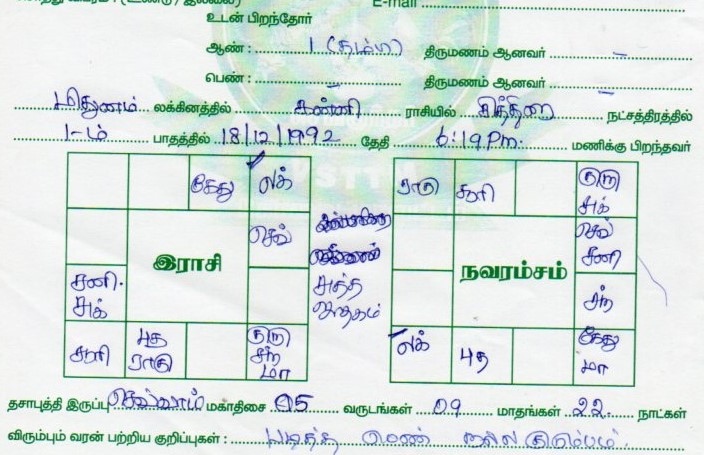 E-mail
உடன் பிறந்தோர்
ஆண் : 1 (தம்பி) திருமணம் ஆனவர் –
பெண் : – திருமணம் ஆனவர் –
மிதுனம் லக்கினத்தில் கன்னி ராசியில் சித்திரை நட்சத்திரத்தில்
1-ம் பாதத்தில் 18/12/1992 தேதி 6:19 Pm. மணிக்கு பிறந்தவர்
கேது லக் ராகு சூரி குரு சுக்
செவ் செவ் சனி
இராசி சுத்த ஜாதகம் நவாம்சம்
சனி. சுக் சந்
சூரி புத ராகு குரு சந் மா லக் புத கேது மா
தசாபுத்தி இருப்பு செவ்வாய் மகாதிசை 05 வருடங்கள் 09 மாதங்கள் 22 நாட்கள்
விரும்பும் வரன் பற்றிய குறிப்புகள் : படித்த பெண் நல்ல குடும்பம்.